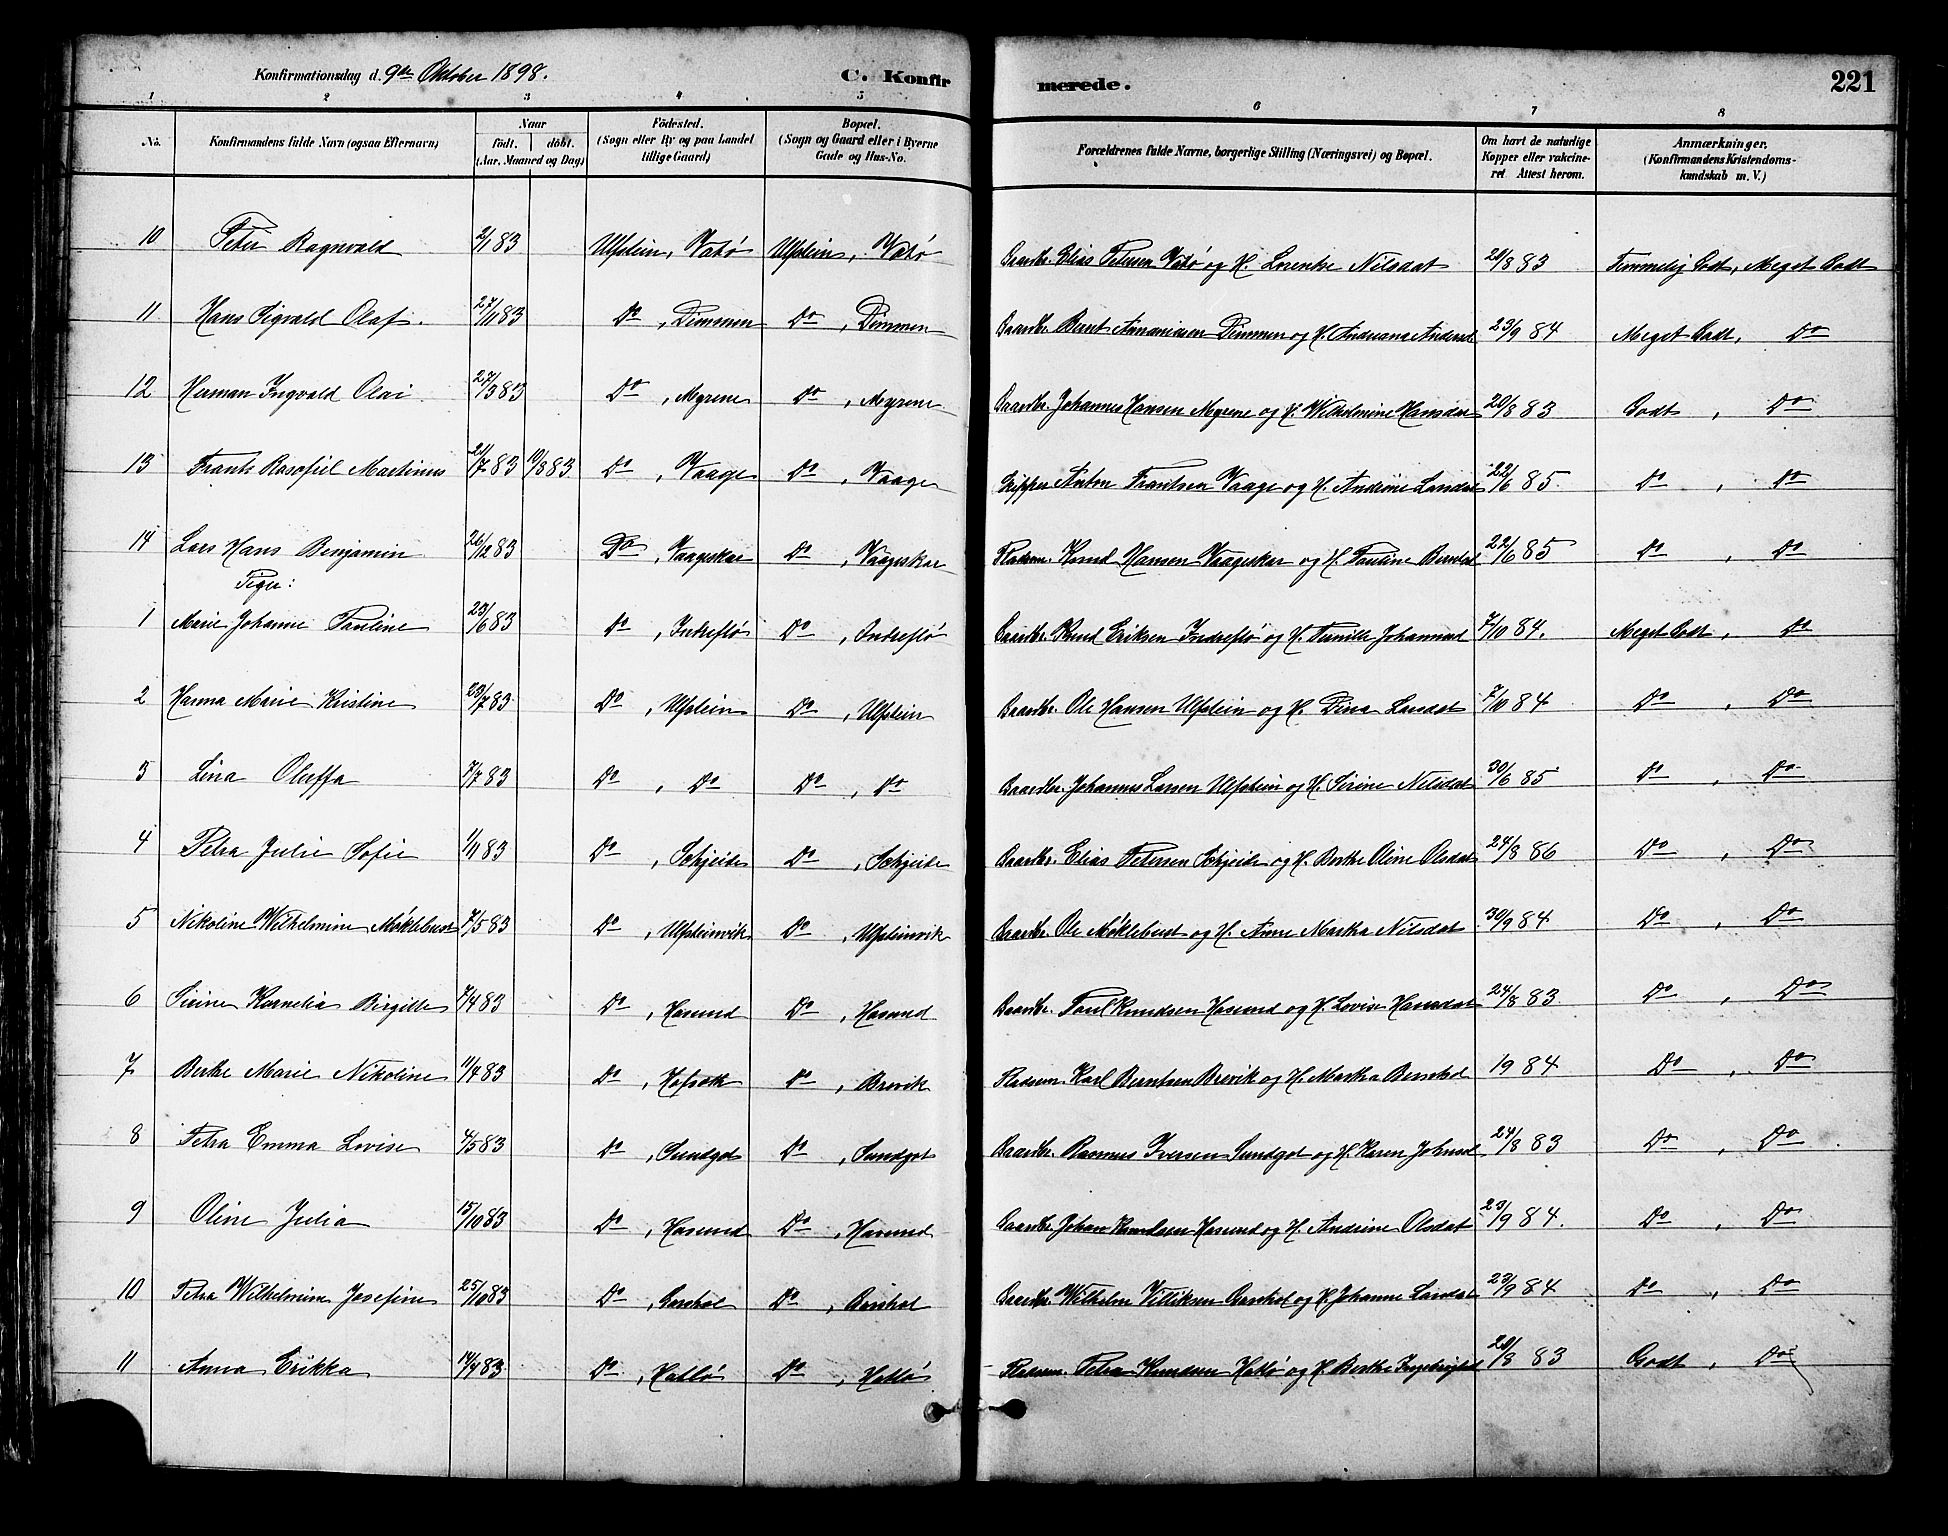 Konfirmationsdag d. 9de Oktober 1898. C. Konfir merede. 221
1 2 3 4 5 6 7 8
No. Konfirmandens fulde Navn (ogsaa Efternavn) Naar födt. döbt. (Aar, Maaned og Dag) Födested. (Sogn eller By og paa Landet tillige Gaard) Bopæl. (Sogn og Gaard eller i Byerne Gade og Hus-No. Forældrenes fulde Navne, borgerlige Stilling (Næringsvei) og Bopæl. Om havt de naturlige Kopper eller vakcineret. Attest herom. Anmærkninger. (Konfirmandens Kristendomskundskab m. V.)
10 Peter Ragnvald 2/1 83 Ulfstein, Vatø Ulfstein, Vatø Gaardbr. Elias Petersen Vatø og H. Lorentse Nilsdat 20/8 83 Temmelig Godt, Meget Godt
11 Hans Sigvald Olaf. 27/11 83 Do, Dimmen Do, Dimmen Gaardbr. Bernt Ananiasen Dimmen og H. Andreane Andersd 23/9 84 Meget Godt, Do
12 Herman Ingvald Olai 27/3 83 Do, Myrene Do, Myrene Gaardbr. Johannes Hansen Myrene og H. Wilhelmine Hansdat 20/8 83 Godt, Do
13 Frants Martinus 21/7 83 19/8 83 Do, Vaage Do, Vaage Skipper Anton Frantsen Vaage og H. Andrine Larsdat 22/6 85. Do, Do
14 Lars Hans Benjamin 26/12 83 Do, Vaageskar Do, Vaageskar Pladsm. Knud Hansen Vaageskar og H. Pauline Berntsd 22/6 85 Do, Do
Piger:
1 Marie Johanne Pauline 23/6 83 Do, Indreflø Do, Indreflø Gaardbr. Knud Eriksen Indreflø og H. Pernille Johannesd 7/10 84. Meget Godt, Do
2 Hanna Marie Kristine 23/7 83 Do, Ulfstein Do, Ulfstein Gaardbr. Ole Hansen Ulfstein og H. Dina Larsdat 7/10 84 Do, Do
3 Lina Oluffa 7/7 83 Do, Do Do, Do Gaardbr. Johannes Larsen Ulfstein og H. Sirine Nilsdat 30/6 85 Do, Do
4 Petra Julie Sofie 1/11 83 Do, Schjeide Do, Schjeide Gaardbr. Elias Petersen Schjeide og H. Berthe Oline Olsdat 24/8 86 Do, Do
5 Nikoline Wilhelmine Møklebust 7/5 83 Do, Ulfsteinvik Do, Ulfsteinvik Gaardbr. Ole Møklebust og H. Anne Martha Nilsdat 30/9 84 Do, Do
6 Sirine Kornelia Birgitte 7/4 83 Do, Hasund Do, Hasund Gaardbr. Paul Knudsen Hasund og H. Lovise Hansdat 24/8 83 Do, Do
7 Berthe Marie Nikoline 11/4 83 Do, Hofsæth Do, Brevik Pladsm. Karl Berntsen Brevik og H. Martha 19 84 Do, Do
8 Petra Emma Lovise 4/5 83 Do, Sundgot Do, Sundgot Gaardbr. Rasmus Iversen Sundgot og H. Karen Johnsd 24/8 83 Do, Do
9 Oline Julia 15/10 83 Do, Hasund Do, Hasund Gaardbr. Johan Knudsen Hasund og H. Andrine Olsdat 23/9 84. Do, Do
10 Petra Wilhelmine Josefine 25/10 83 Do, Garshol Do, Garshol Gaardbr. Wilhelm Garshol og H. Johanne Larsdat 23/9 84 Do, Do
11 Anna Erikka 14/4 83 Do, Hatlø Do, Hatlø Pladsm. Knudsen Hatlø og H. Berthe 20/8 83 Godt, Do